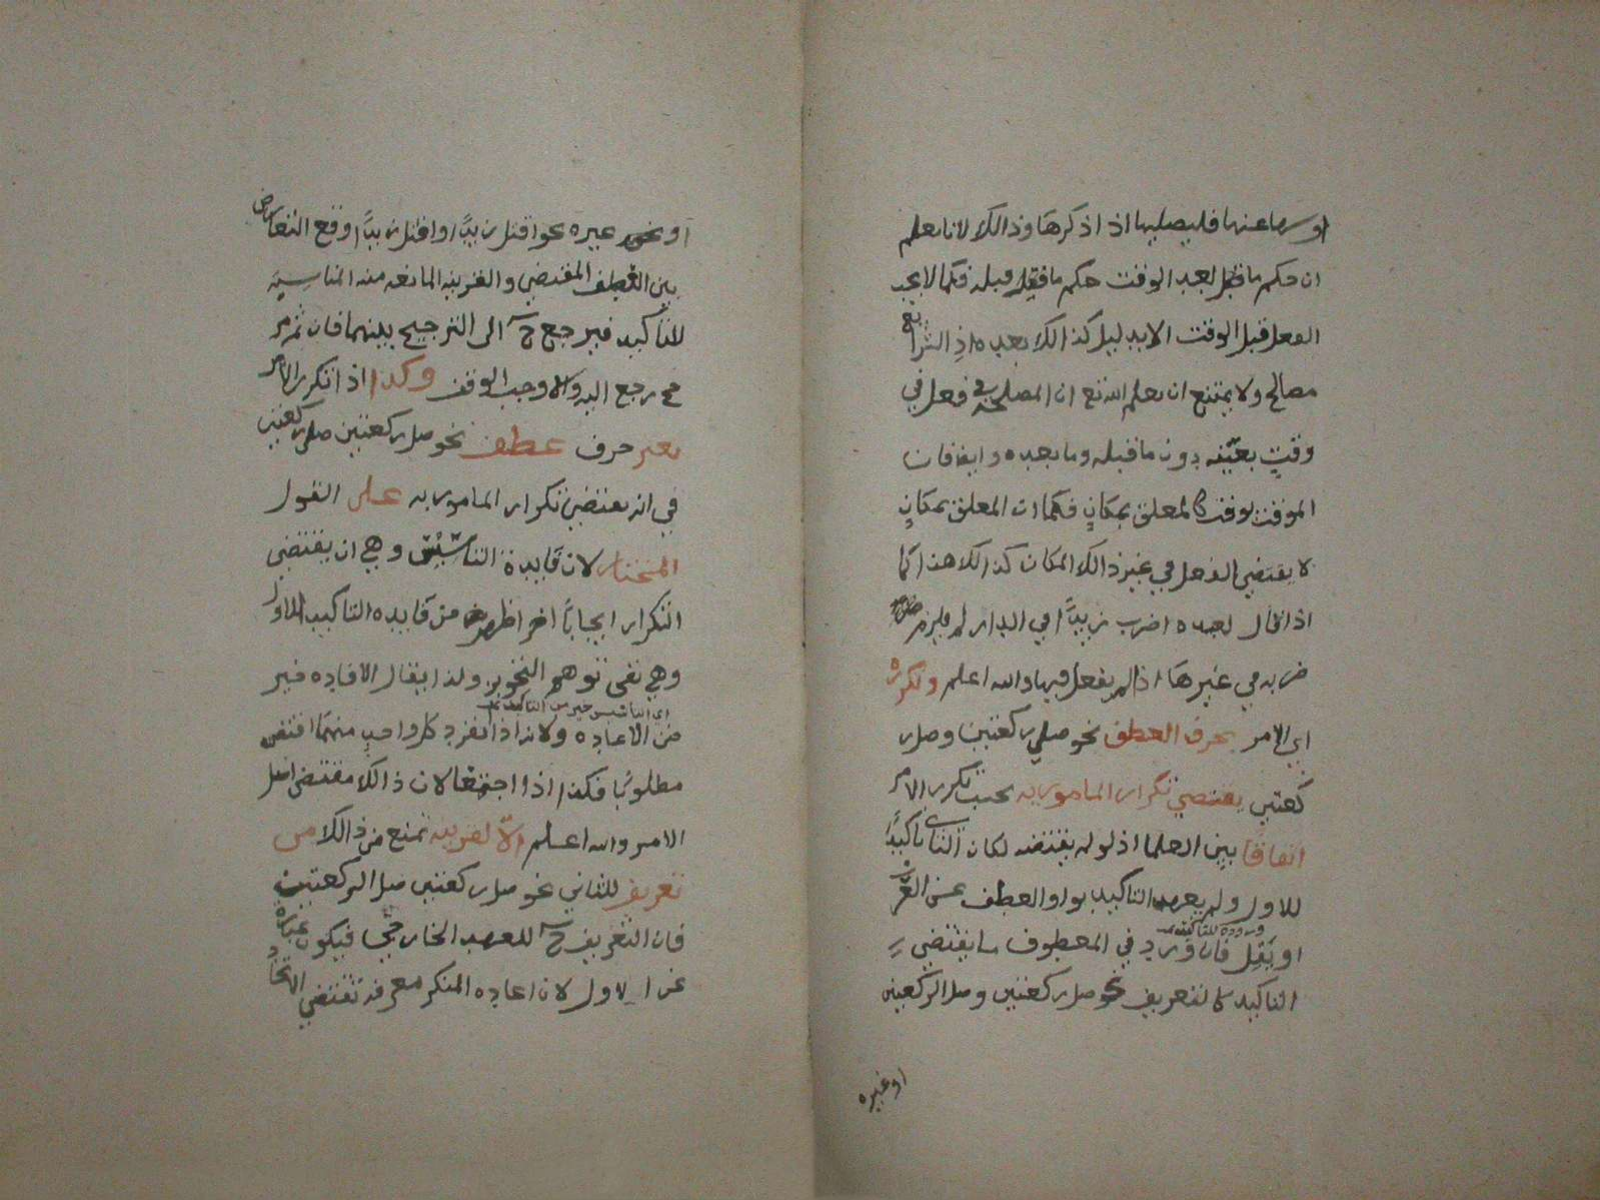 او سها عنها فليصليها اذا ذكرها وذالك لانا نعلم
ان حكم ما فعل بعد الوقت حكم ما فعل قبله فكما لا يجب
الفعل قبل الوقت الا بدليل كذالك بعده اذ الشرائع
مصالح ولا يمتنع ان يعلم الله تع ان المصلحة في فعل في
وقتٍ بعينه دون ما قبله وما بعده وايضا فان
الموقت بوقت كالمعلق بمكانٍ فكما ان المعلق بمكانٍ
لا يقتضي الفعل في غير ذالك المكان كذالك هذا كما
اذا قال لعبده اضرب زيدًا في الدار لم يلزم
ضربه في غيرها اذا لم يفعل فيها والله اعلم وتكرره
اي الامر بحرف العطف نحو صلي ركعتين وصل ر
كعتين يقتضي تكرار المامور به بحسب تكرر الامر
اتفاقا بين العلما اذ لو لم يقتضه لكان الثاني تاكيدًا
للاول ولم يعهد التاكيد بواو العطف عن العرب
وروده للتاكيد
او يقل فان ورد في المعطوف ما يقتضي
التاكيد كالتعريف نحو صل ركعتين وصل الركعتين
او غيره
او نحو غيره نحو اقتل زيدًا واقتل زيدًا وقع التعارض
بين العطف المقتضي والقرينه المانعه منه المناسبة
للتاكيد فيرجع ح الى الترجيح بينهما فان ثم مر
جح رجع اليه والا وجب الوقف وكذا اذا تكرر الامر
بغير حرف عطف نحو صل ركعتين صل ركعتين
في انه يقتضي تكرار المامور به على القول
المختار لان فايدة التاسيس وهي ان يقتضي
التكرار ايجابًا اخر اظهر من فايده التاكيد الاول
وهي نفي توهم التجوز ولذا يقال الافاده خير
اي التاسيس خير من التاكيد
من الاعاده ولانه اذا انفرد كل واحدٍ منهما اقتضى
مطلوبًا فكذا اذا اجتمعا لان ذالك مقتضى اصل
الامر والله اعلم الا لقرينه تمنع من ذالك من
تعريف للثاني نحو صل ركعتين صل الركعتين
فان التعريف ح للعهد الخارجي فيكون عباره
عن الاول لان اعاده المنكر معرفه تقتضي الاتحاد